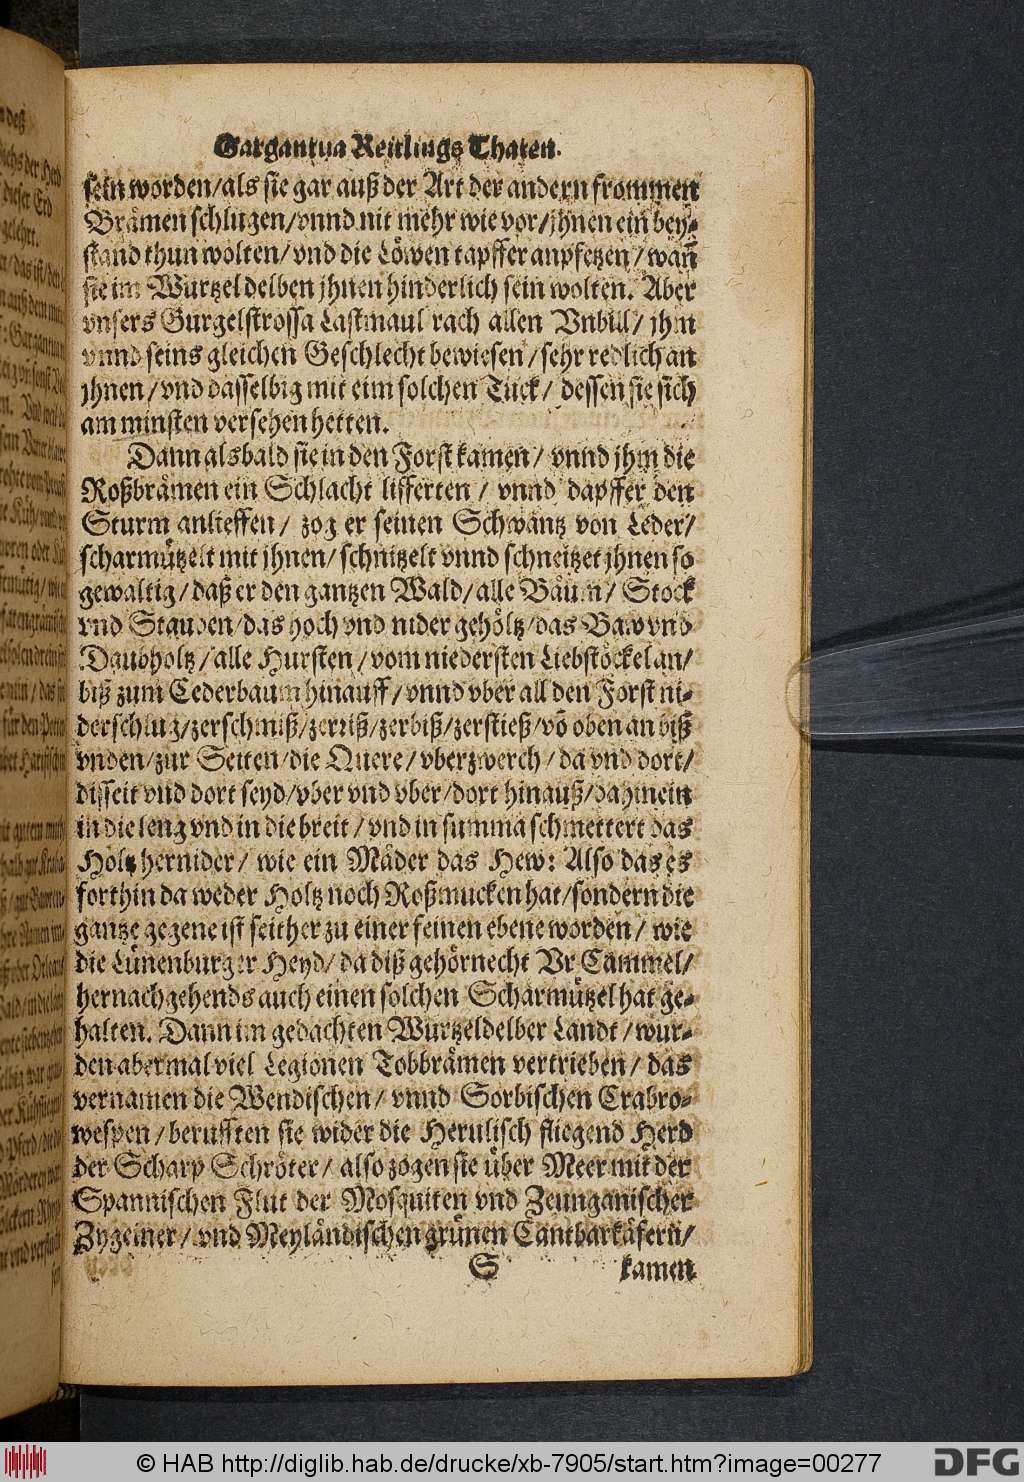 Gargantua Reitlings Thaten.
sein worden/als sie gar auß der Art der andern frommen
Brämen schlugen/vnnd nit mehr wie vor/jhnen ein bey-
stand thun wolten/vnd die Löwen tapffer anpfetzen/wañ
sie im Wurtzel delben jhnen hinderlich sein wolten. Aber
vnsers Gurgelstrossa Lastmaul rach allen Vnbill/ jhm
vnnd seins gleichen Geschlecht bewiesen/sehr redlich an
jhnen/vnd dasselbig mit eim solchen Tück/ dessen sie sich
am minsten versehen hetten.
Dann alsbald sie in den Forst kamen/ vnnd jhm die
Roßbrämen ein Schlacht lifferten/ vnnd dapffer den
Sturm anlieffen/ zog er seinen Schwantz von Leder/
scharmützelt mit jhnen/schnitzelt vnnd schneitzet jhnen so
gewaltig/daß er den gantzen Wald/alle Bäum/ Stock
vnd Stauden/das hoch vnd nider gehöltz/das Baw vnd
Daubholtz/alle Hursten/vom niedersten Liebstöckel an/
biß zum Cederbaum hinauff/vnnd vber all den Forst ni-
derschlug/zerschmiß/zerriß/zerbiß/zerstieß/vō oben an biß
vnden/zur Seiten/die Quere/vberzwerch/da vnd dort/
disseit vnd dort seyd/vber vnd vber/dort hinauß/dahinein
in die leng vnd in die breit/vnd in summa schmettert das
Holtz hernider/ wie ein Mäder das Hew: Also das es
forthin da weder Holtz noch Roßmucken hat/sondern die
gantze gegene ist seither zu einer feinen ebene worden/ wie
die Lünenburger Heyd/da diß gehörnecht Vr Cammel/
hernachgehends auch einen solchen Scharmützel hat ge-
halten. Dann im gedachten Wurtzeldelber Landt/wur-
den abermal viel Legionen Tobbrämen vertrieben/ das
vernamen die Wendischen/ vnnd Sorbischen Crabro-
wespen/berufften sie wider die Herulisch fliegend Herd
der Scharp Schröter/ also zogen sie über Meer mit der
Spannischen Flut der Mosquiten vnd Zeunganischer
Zygeiner/vnd Meyländischen grünen Cantharkäfern/
S kamen
© HAB http://diglib.hab.de/drucke/xb-7905/start.htm?image=00277
DFG